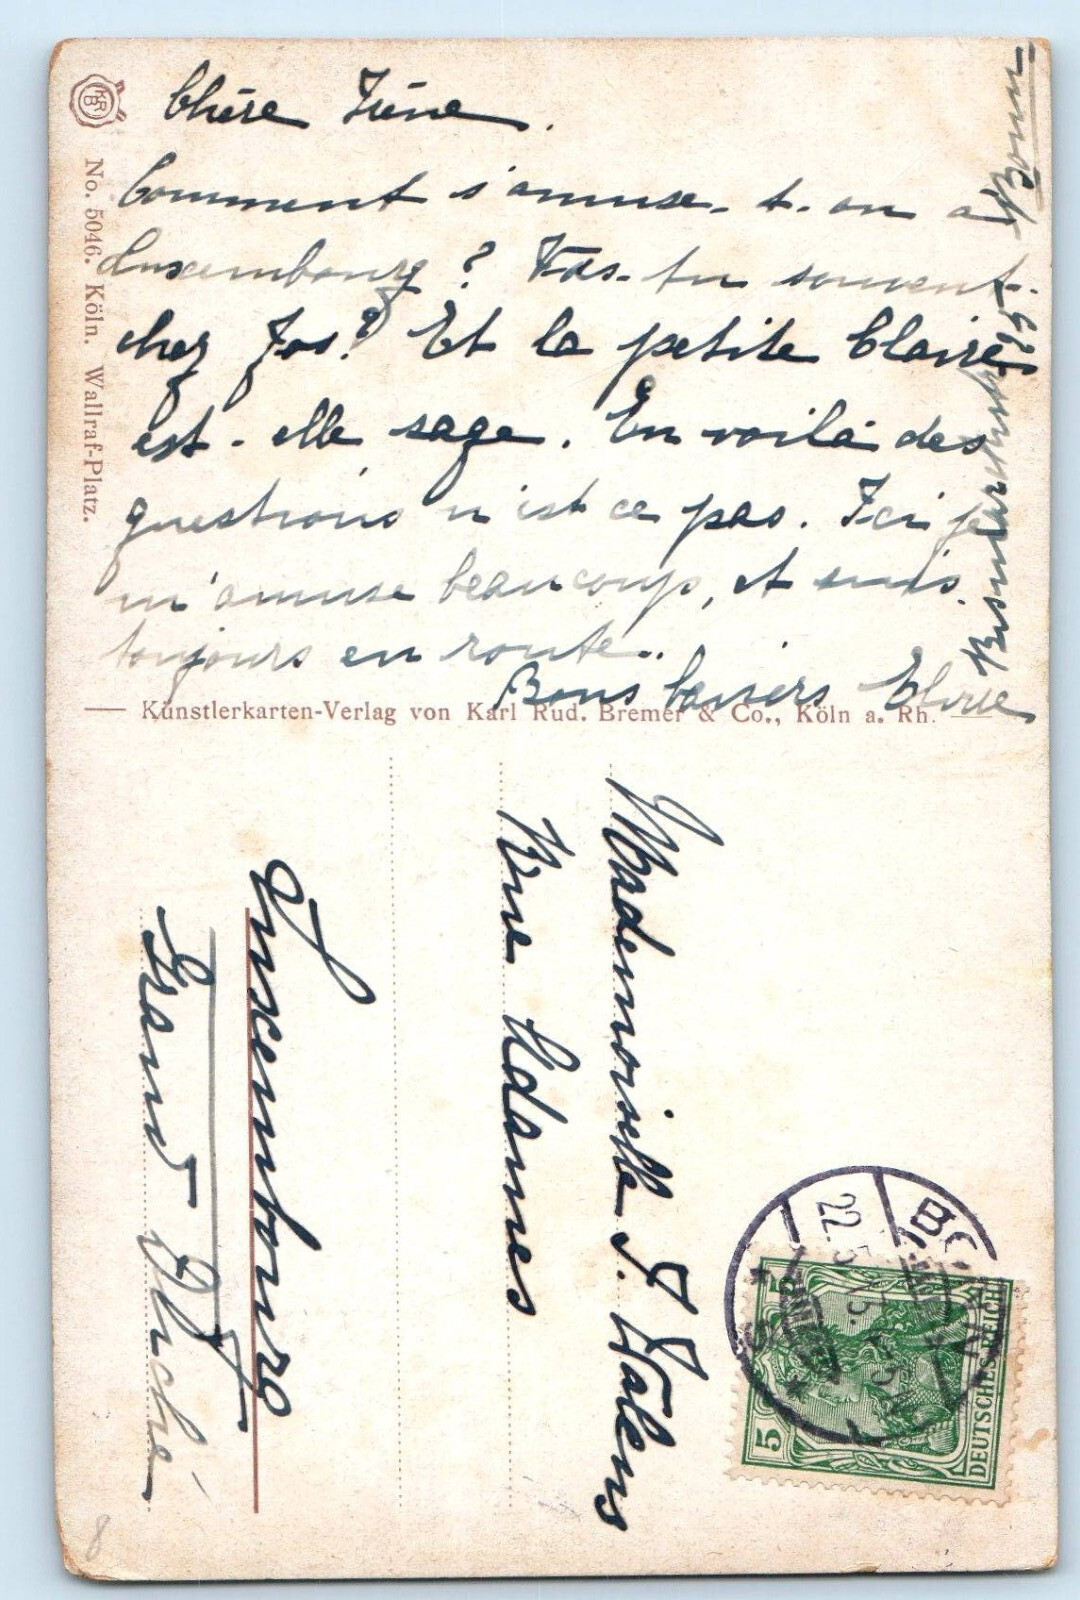 Chére Iréne.
Comment s'amuse-t-on a
Luxembourg? Vas-tu souvent
chez Jos? Et la petite Claire
est-elle sage. En voilà des
questions n'est ce pas. Ici je
m'amuse beaucoup, et suis
toujours en route..
Bons baisers
Bonn
25
BKR
No. 5046. Köln. Wallraf-Platz.
Künstlerkarten-Verlag von Karl Rud. Bremer & Co., Köln a. Rh.
Mademoiselle I. Walens
Rue Adames
Luxembourg
Grand Duché
BONN
22.5.
5 5
5
DEUTSCHES REICH